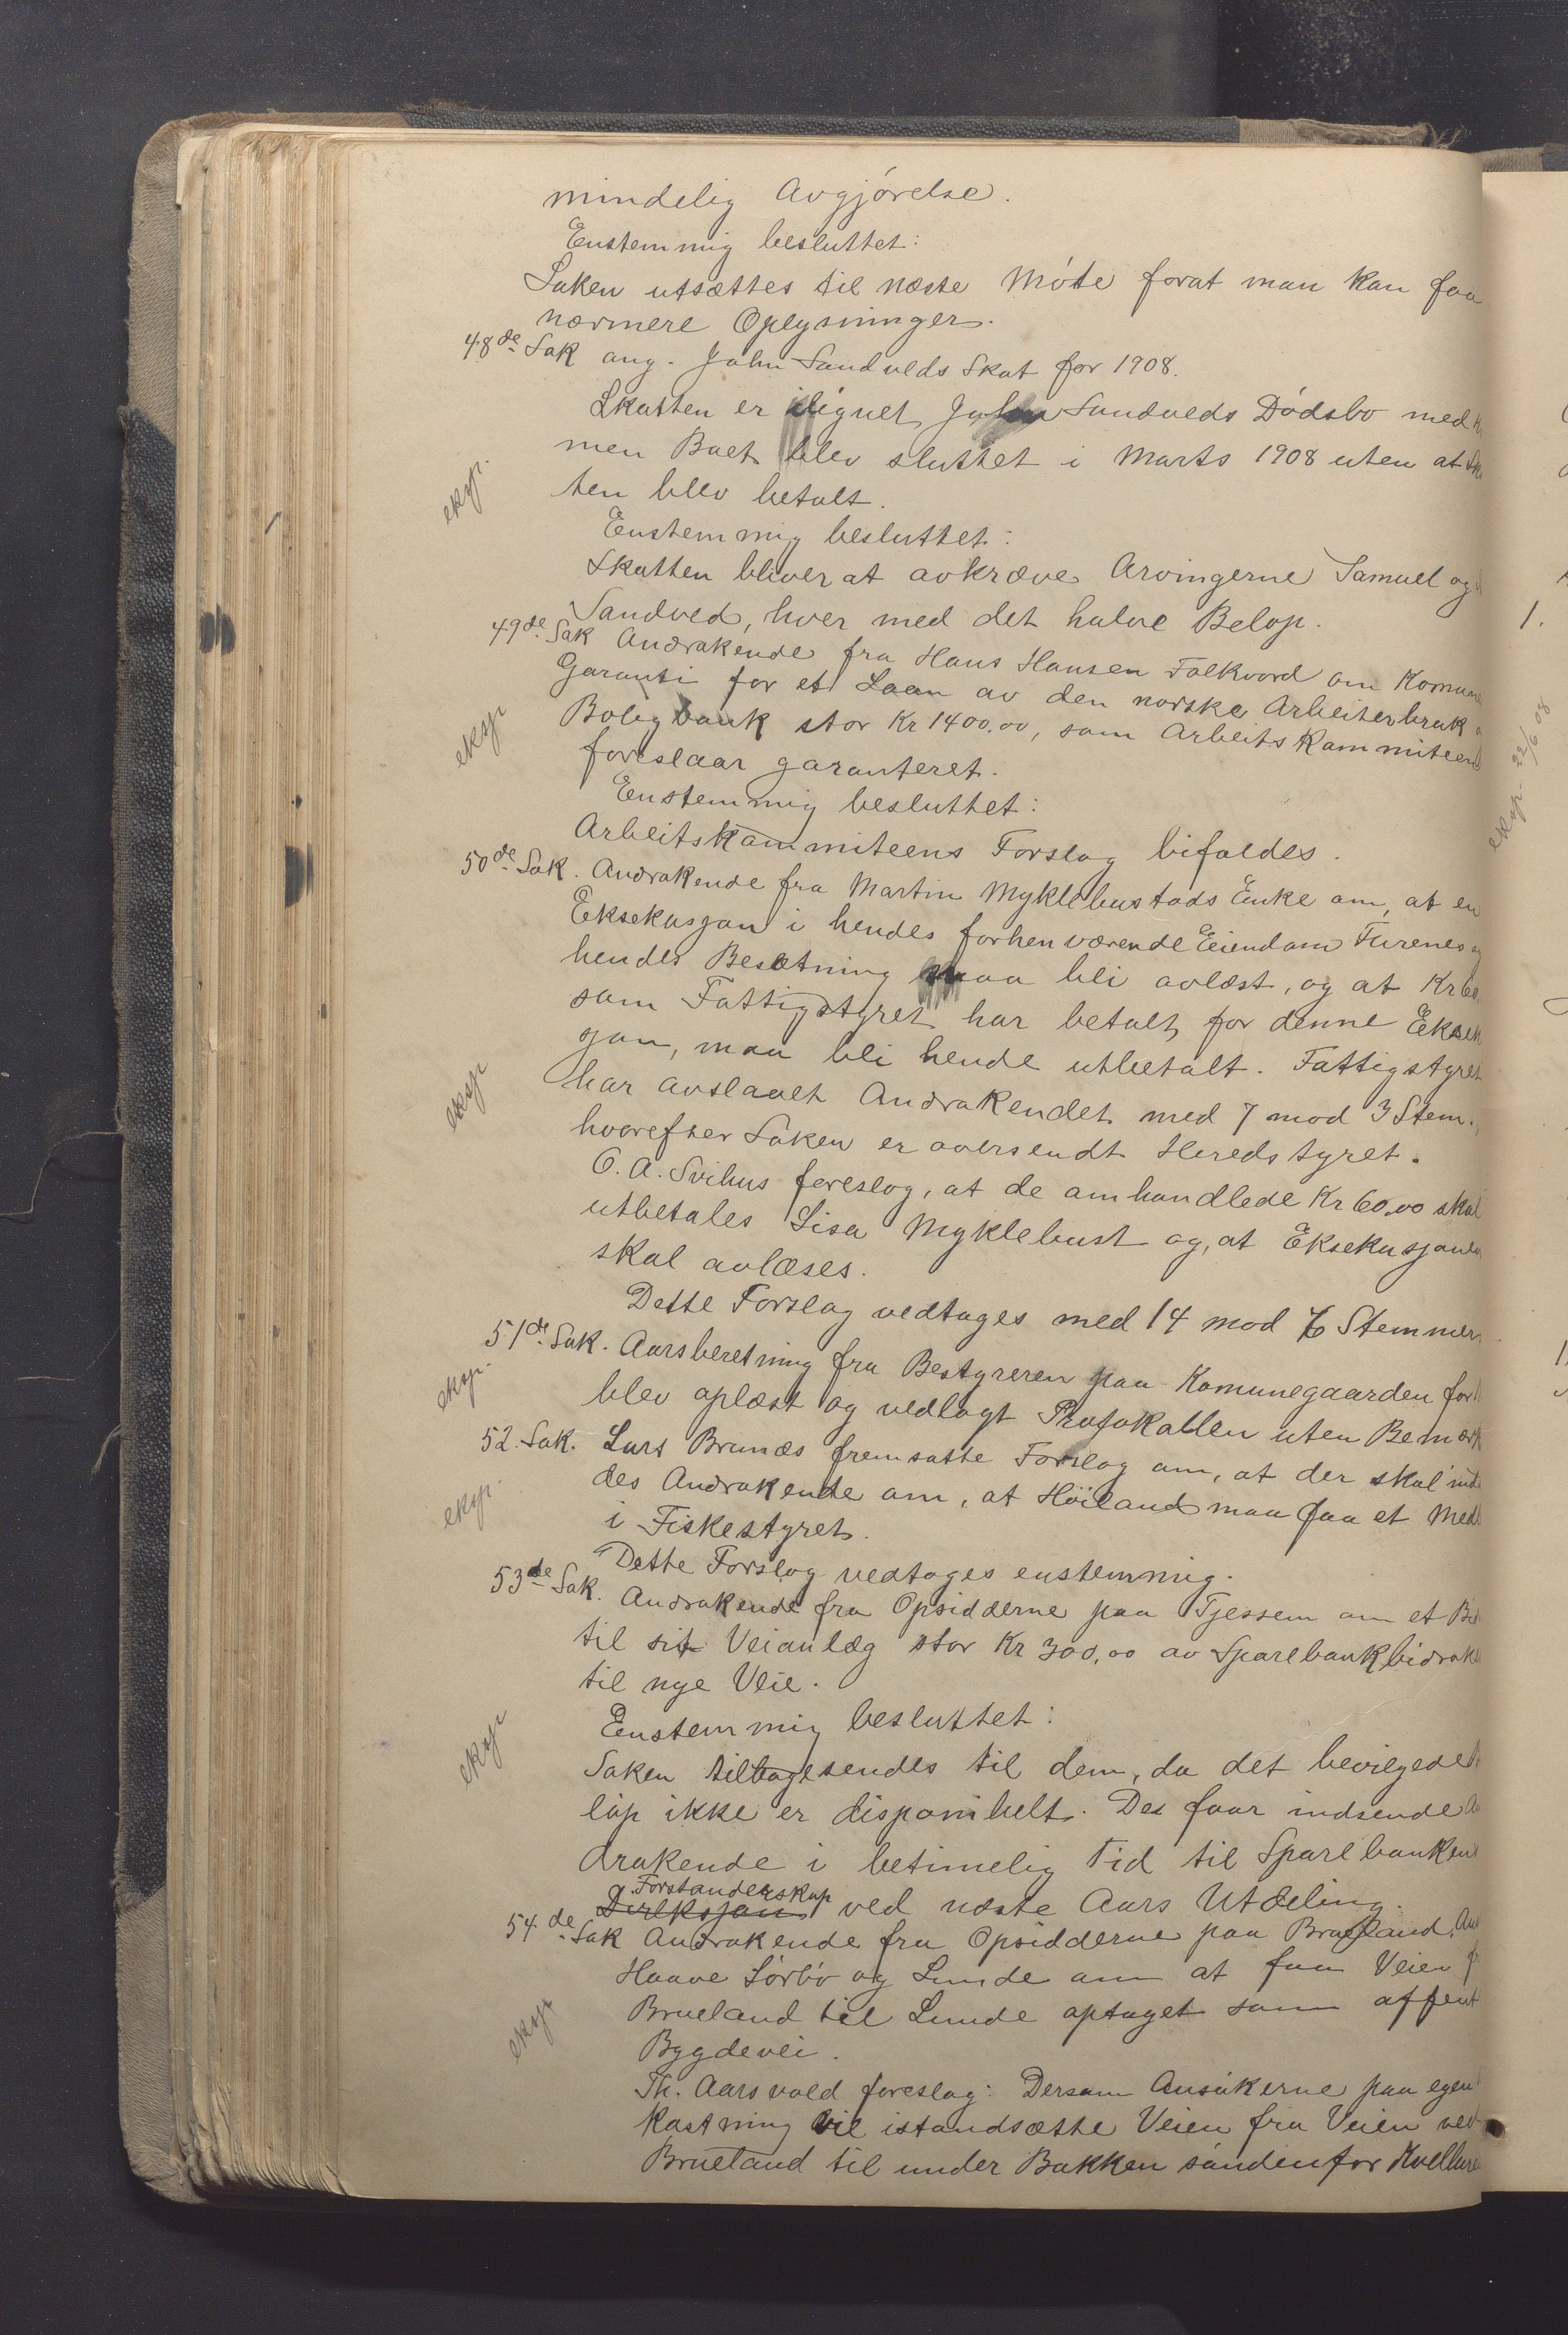 mindelig Avgjórelse.
Enstemmig besluttet:
Saken utsættes til næste Móte forat man kan faa
nærmere Oplysninger.
48de Sak ang. John Sandveds Skat for 1908.
Skatten er ilignet John Sandveds Dódsbo med
men Boet blev sluttet i Marts 1908 uten at
eksp.
ten blev betalt.
Enstemmig besluttet:
Skatten bliver at avkræve Arvingerne Samuel og
Sandved, hver med det halve Belop.
49de Sak Andrakende fra Hans Hansen Folkvord om Komune
Garanti for et Laan av den norske Arbeiterbruk
eksp
Boligbank stor Kr 1400.00, som Arbeitskommiteen
foreslaar garanteret.
Enstemmig besluttet:
Arbeitskommiteens Forslag bifaldes.
50de Sak. Andrakende fra Martin Myklebustads Enke om, at en
Eksekusjon i hendes forhenværende Eiendom Furenes og
hendes Besætning maa bli avlæst, og at Kr 60
som Fattigstyret har betalt for denne Eksek
eksp
jon, maa bli hende utbetalt. Fattigstyret
har avslaaet Andrakendet med 7 mod 3 Stem.,
hvorefter Saken er oversendt Heredstyret.
O. A. Svihus foreslog, at de omhandlede Kr 60.00 skal
utbetales Lisa Myklebust og, at Eksekusjonen
skal avlæses.
Dette Forslag vedtages med 14 mod 6 Stemmer.
51de Sak. Aarsberetning fra Bestyreren paa Komunegaarden for
eksp.
blev oplæst og vedlagt Protokollen uten Bemærk
52. Sak. Lars Brunæs fremsatte Forslag om, at der skal ind
eksp.
des Andrakende om, at Höiland maa faa et Med
i Fiskestyret.
Dette Forslag vedtages enstemmig.
53de Sak. Andrakende fra Opsidderne paa Tjessem om et Bi
til sit Veianlæg stor Kr 300,00 av Sparebankbidrak
til nye Veie.
Enstemmig besluttet:
eksp
Saken tilbagesendes til dem, da det bevilgede
lóp ikke er disponibelt. De faar indsende
drakende i betimelig Tid til Sparebanken
Forstanderskap
Direksjon ved næste Aars Utdeling.
54de Sak Andrakende fra Opsidderne paa Brueland,
Haave Sórbó og Lunde om at faa Veien
Brueland til Lunde optaget som offent
eksp
Bygdevei.
Th. Aarsvold foreslog: Dersom Ansókerne paa egen
kostning vil istandsætte Veien fra Veien ved
Brueland til under Bakken sóndenfor Kvelluren
1.
eksp. 22/6 08